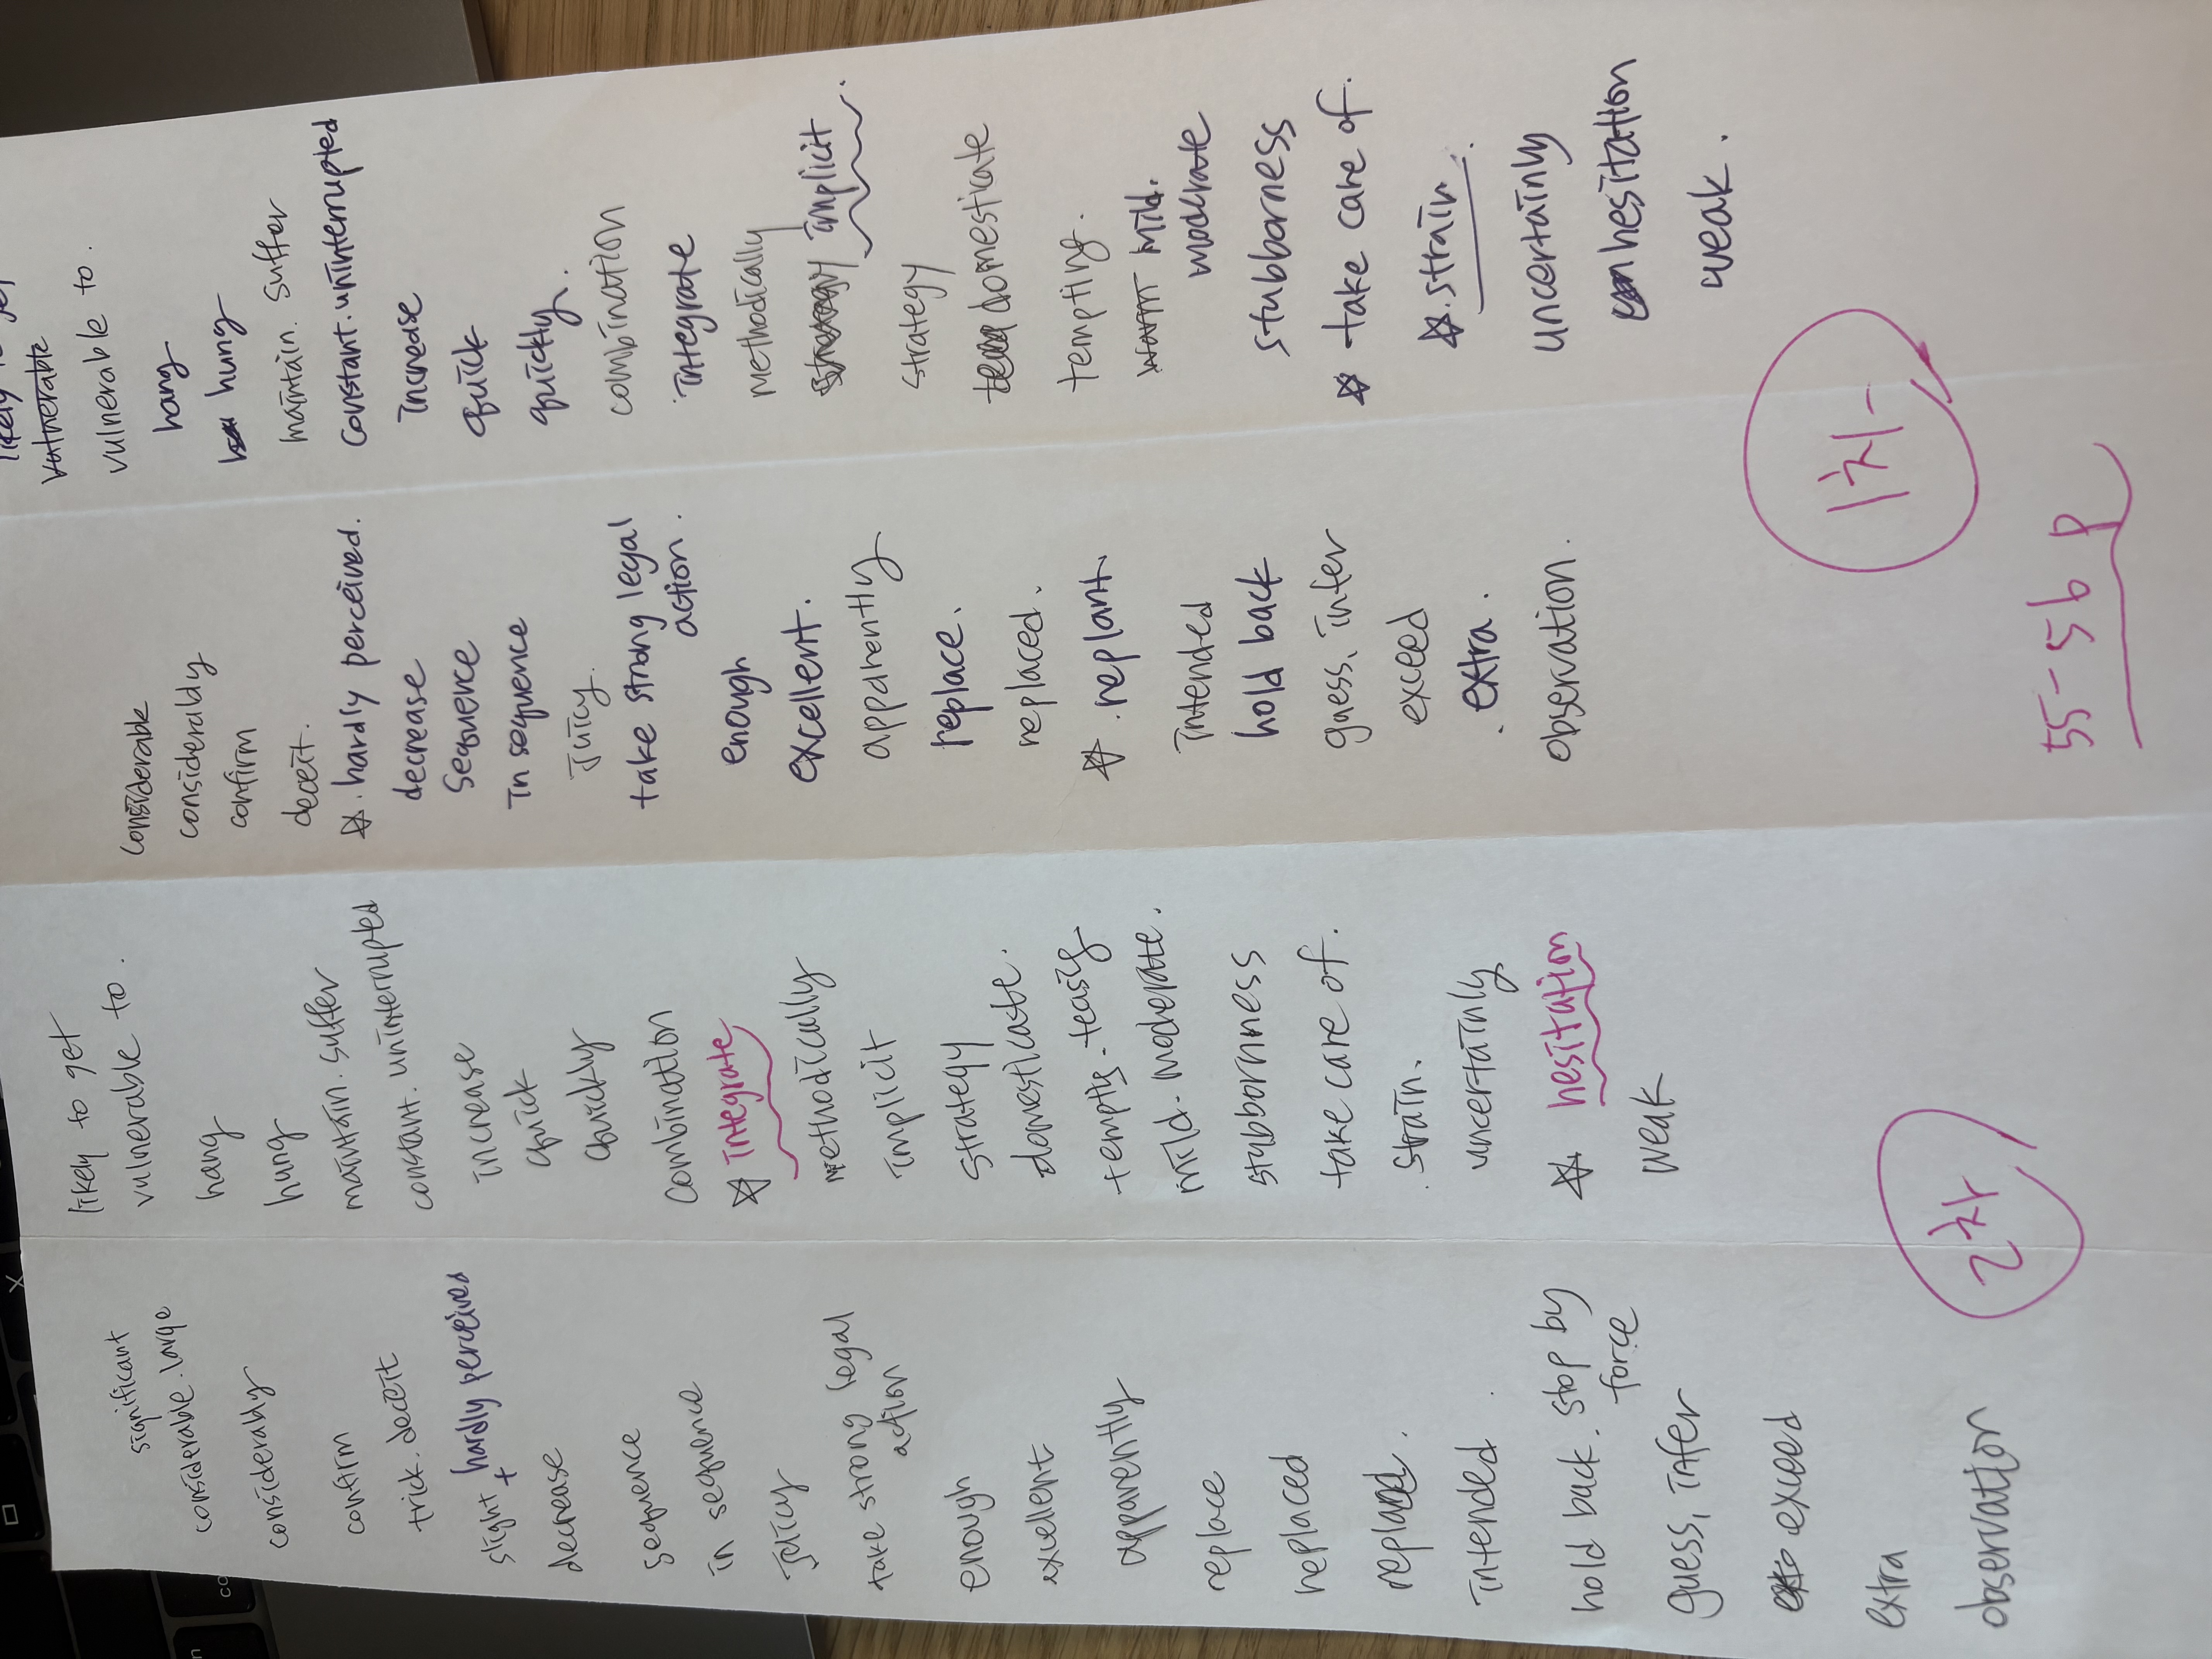 significant
considerable. large
considerably
confirm
trick. deceit
slight + hardly perceived
decrease
sequence
in sequence
juicy
take strong legal
action
enough
excellent
apparently
replace
replaced
intended
hold back. stop by
force
guess, infer
exceed
extra
observation
likely to get
vulnerable to.
hang
hung
maintain. suffer
constant. uninterrupted
increase
quick
quickly
combination
☆ integrate
methodically
implicit
strategy
domesticate.
mild. moderate.
stubborness
take care of.
strain.
uncertainly
☆ hesitation
weak
2차
considerable
considerably
confirm
deceit.
☆. hardly perceived.
decrease
sequence
in sequence
juicy.
take strong legal
action.
enough
excellent.
apparently
replace.
replaced.
☆. replant.
intended
hold back
guess, infer
exceed
. extra.
observation.
vulnerable
vulnerable to.
hang
hung
maintain. suffer
constant. uninterrupted
increase
quick
quickly.
combination
integrate
methodically
implicit
strategy
domesticate
tempting.
mild.
moderate
stubborness
☆ take care of.
☆. strain.
uncertainly
hesitation
weak.
1차
55-56 p